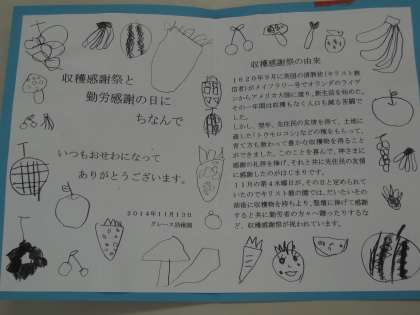 収穫感謝祭と
勤労感謝の日に
ちなんで
いつもおせわになって
ありがとうございます。
2014年11月13日
グレース幼稚園
収穫感謝祭の由来
1620年9月に英国の清教徒(キリスト教
信者)がメイフラワー号でオランダのライデ
ンからアメリカ大陸に渡り、新生活を始めた。
その一年間は収穫もなく人口も減る苦闘でし
た。
しかし、翌年、先住民の友情を得て、土地に
適した(トウモロコシ)などの種をもらって、
育て方も教わって豊かな収穫物を得ること
ができました。このことを喜んで、神さまに
感謝の礼拝を捧げ、それと共に先住民の友情
に感謝したのがはじまりです。
11月の第4木曜日が、その日と定められて
いたのでキリスト教の国では、だいたいその
前後に収穫物を持ちより、祭壇に捧げて感謝
すると共に勤労者の方々へ贈ったりするな
ど、収穫感謝祭が祝われています。